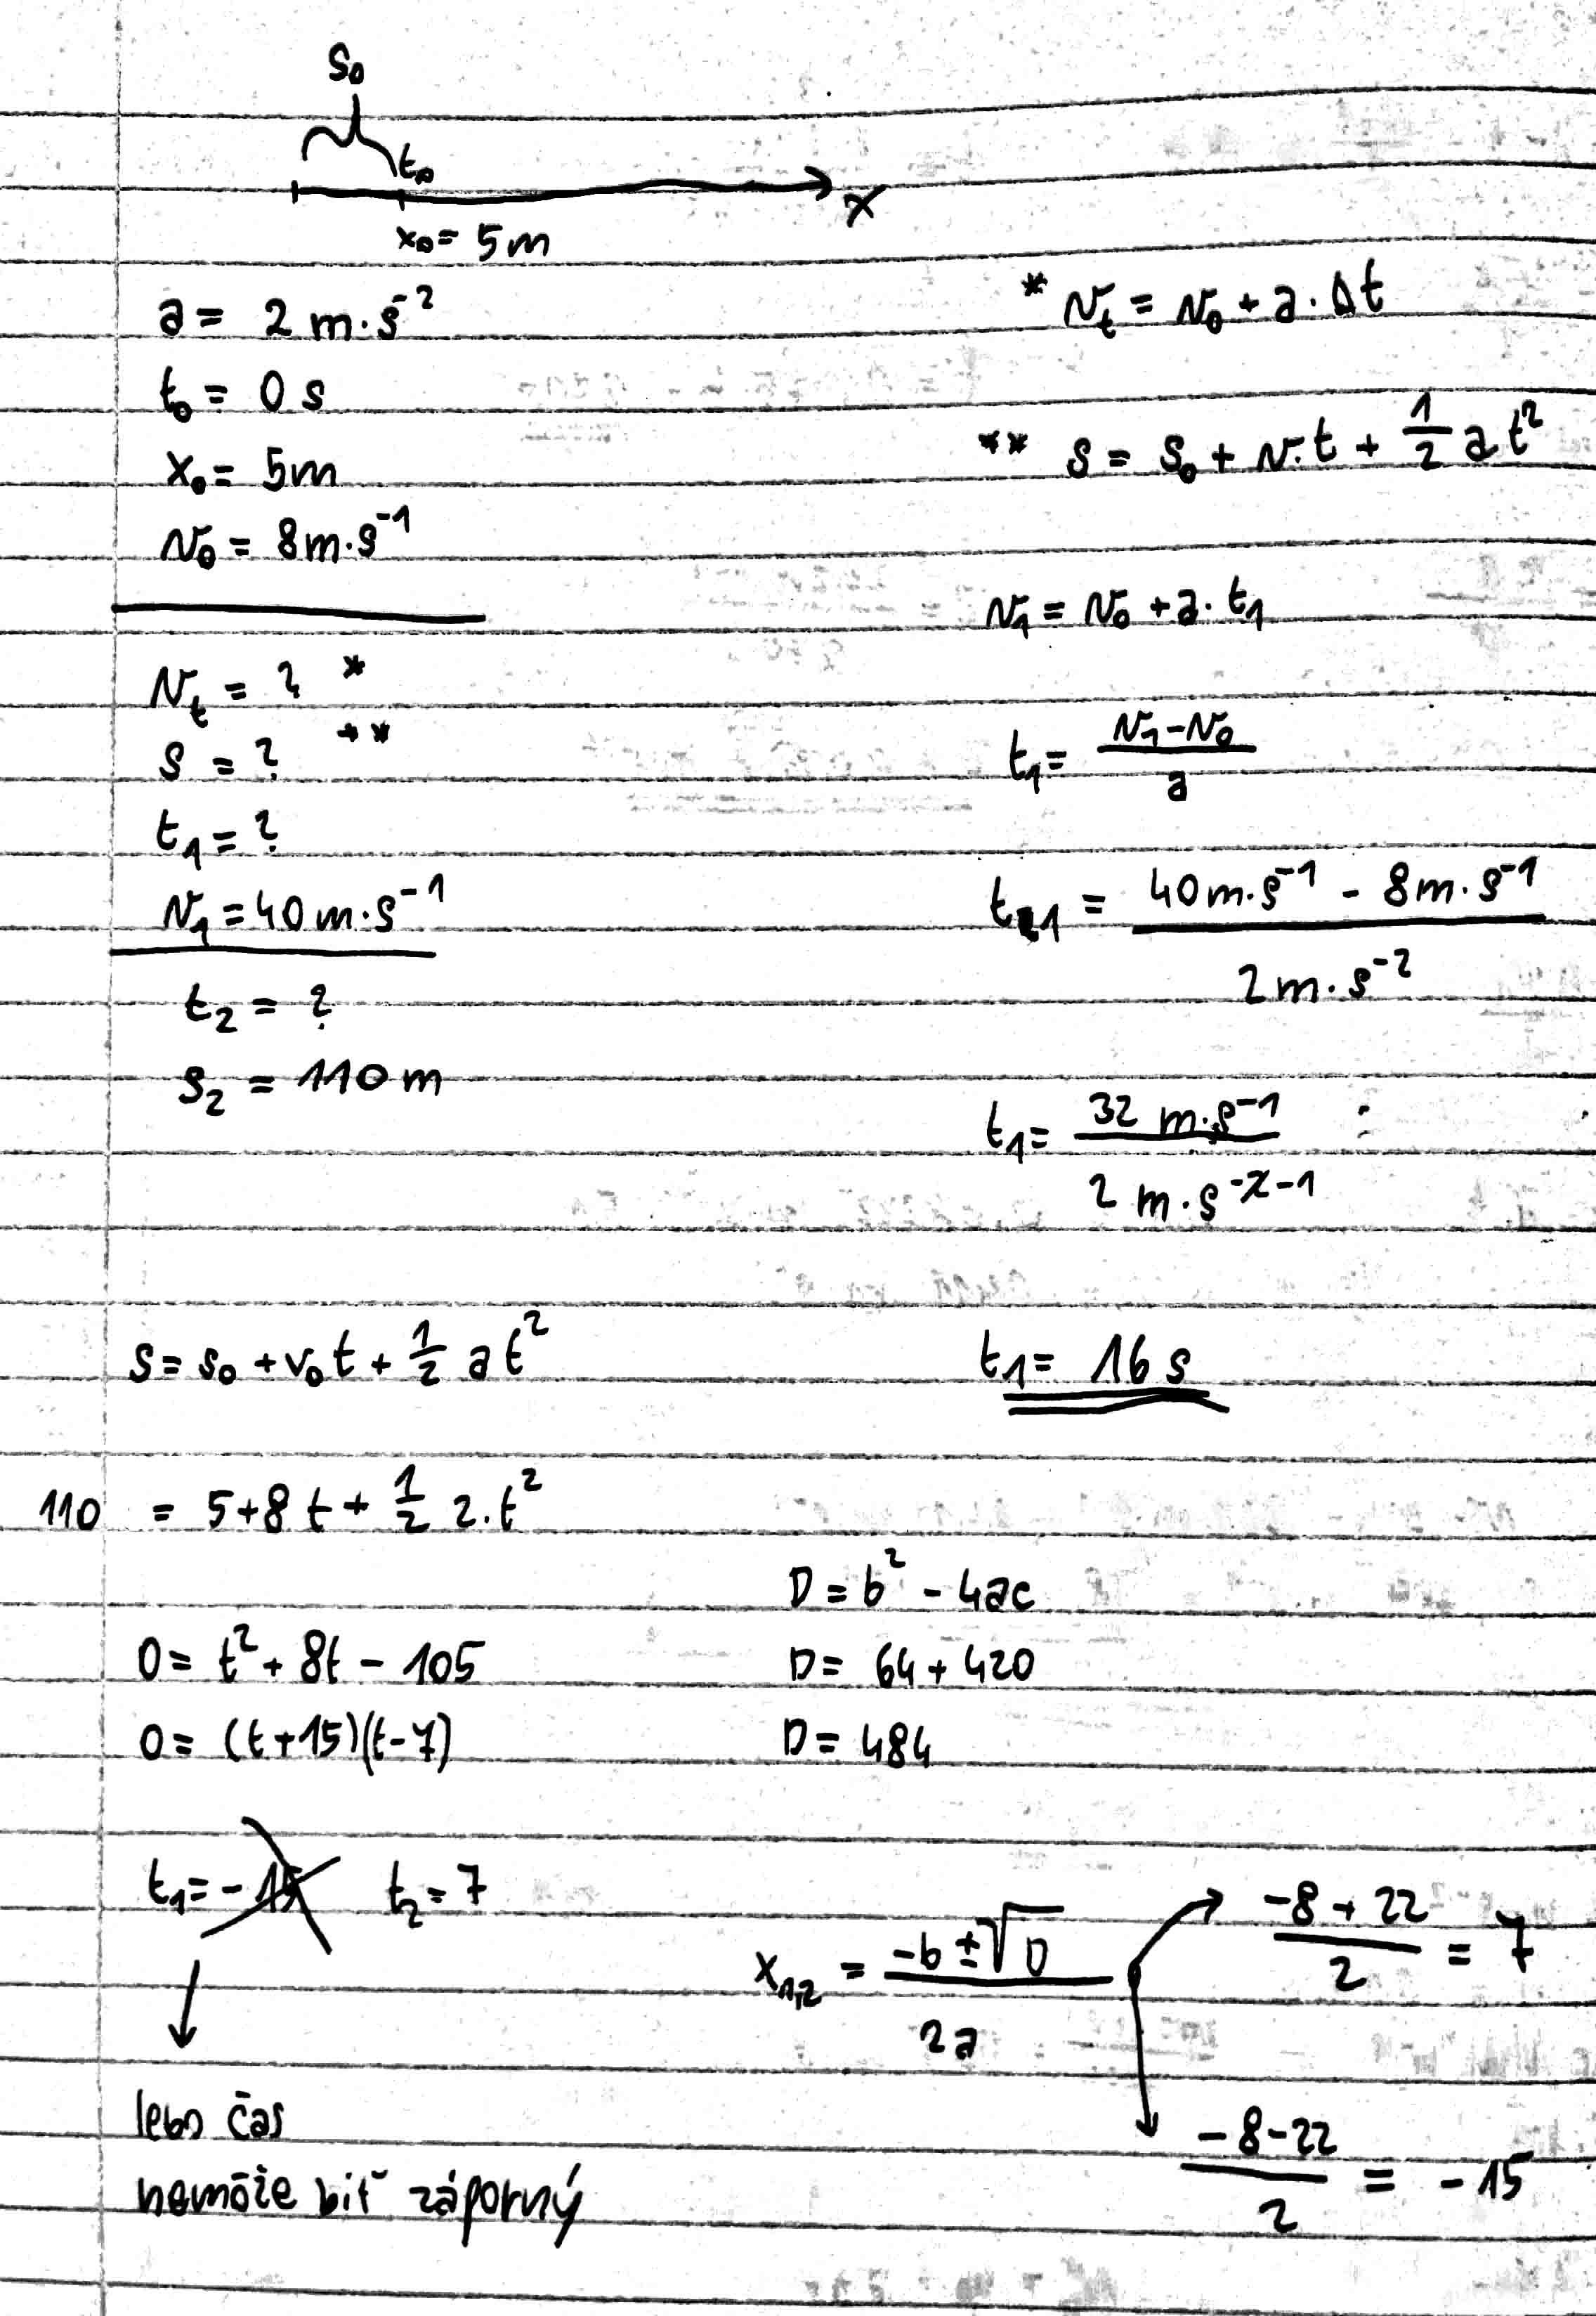 s₀
t₀
x
x₀ = 5m
a = 2 m·s⁻²
t₀ = 0 s
x₀ = 5m
v₀ = 8m·s⁻¹
v_t = ? *
s = ? **
t₁ = ?
v₁ = 40 m·s⁻¹
t₂ = ?
s₂ = 110 m
* v_t = v₀ + a · Δt
** s = s₀ + v·t + 1/2 a t²
v₁ = v₀ + a · t₁
t₁ = (v₁ - v₀)/a
t₁ = (40 m·s⁻¹ - 8m·s⁻¹)/(2 m·s⁻²)
t₁ = (32 m·s⁻¹)/(2 m·s⁻²⁻¹)
t₁ = 16 s
s = s₀ + v₀t + 1/2 a t²
110 = 5+8 t + 1/2 2.t²
0 = t² + 8t - 105
0 = (t+15)(t-7)
t₁ = -15 t₂ = 7
lebo čas
nemôže biť záporný
D = b² - 4ac
D = 64 + 420
D = 484
x₁,₂ = (-b ± √D)/2a
(-8 + 22)/2 = 7
(-8-22)/2 = -15